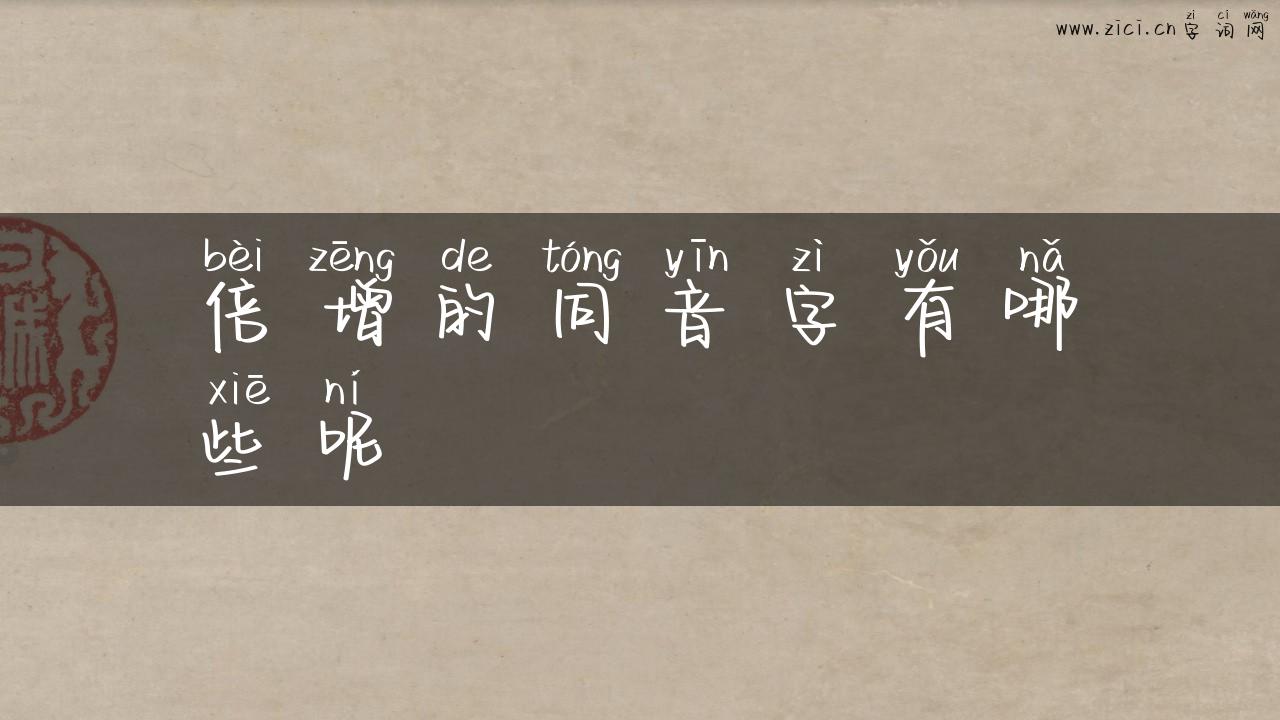 zì cí wǎng
www.zici.cn 字词网
bèi zēng de tóng yīn zì yǒu nǎ
倍增的同音字有哪
xiē ní
些呢